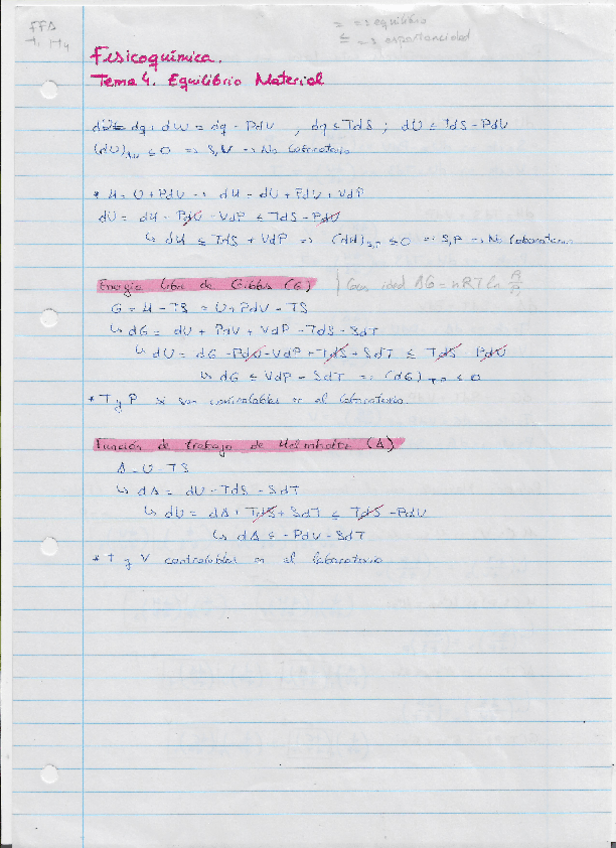 = => equilibrio
≤ => espontaneidad
Fisicoquímica.
Tema 4. Equilibrio Material
dq + dW = dq - PdV , dq ≤ TdS ; dU ≤ TdS - PdV
(dU) ≤ 0 => S,V -> No laboratorio
* H = U + PdV -> dH = dU + PdV + VdP
dU = dH - PdV - VdP ≤ TdS - PdV
↳ dH ≤ TdS + VdP => (dH)S,P ≤ 0 => S,P -> No laboratorio
Energía libre de Gibbs (G) | Gas ideal ΔG = nRT ln
G = H - TS = U + PdV - TS
↳ dG = dU + PdV + VdP - TdS - SdT
↳ dU = dG - PdV - VdP + TdS + SdT ≤ TdS PdV
↳ dG ≤ VdP - SdT => (dG)T,P ≤ 0
* T y P si son controlables en el laboratorio.
Función de trabajo de Helmholtz (A)
A = U - TS
↳ dA = dU - TdS - SdT
↳ dU = dA + TdS + SdT ≤ TdS - PdV
↳ dA ≤ - PdV - SdT
* T y V controlables en el laboratorio